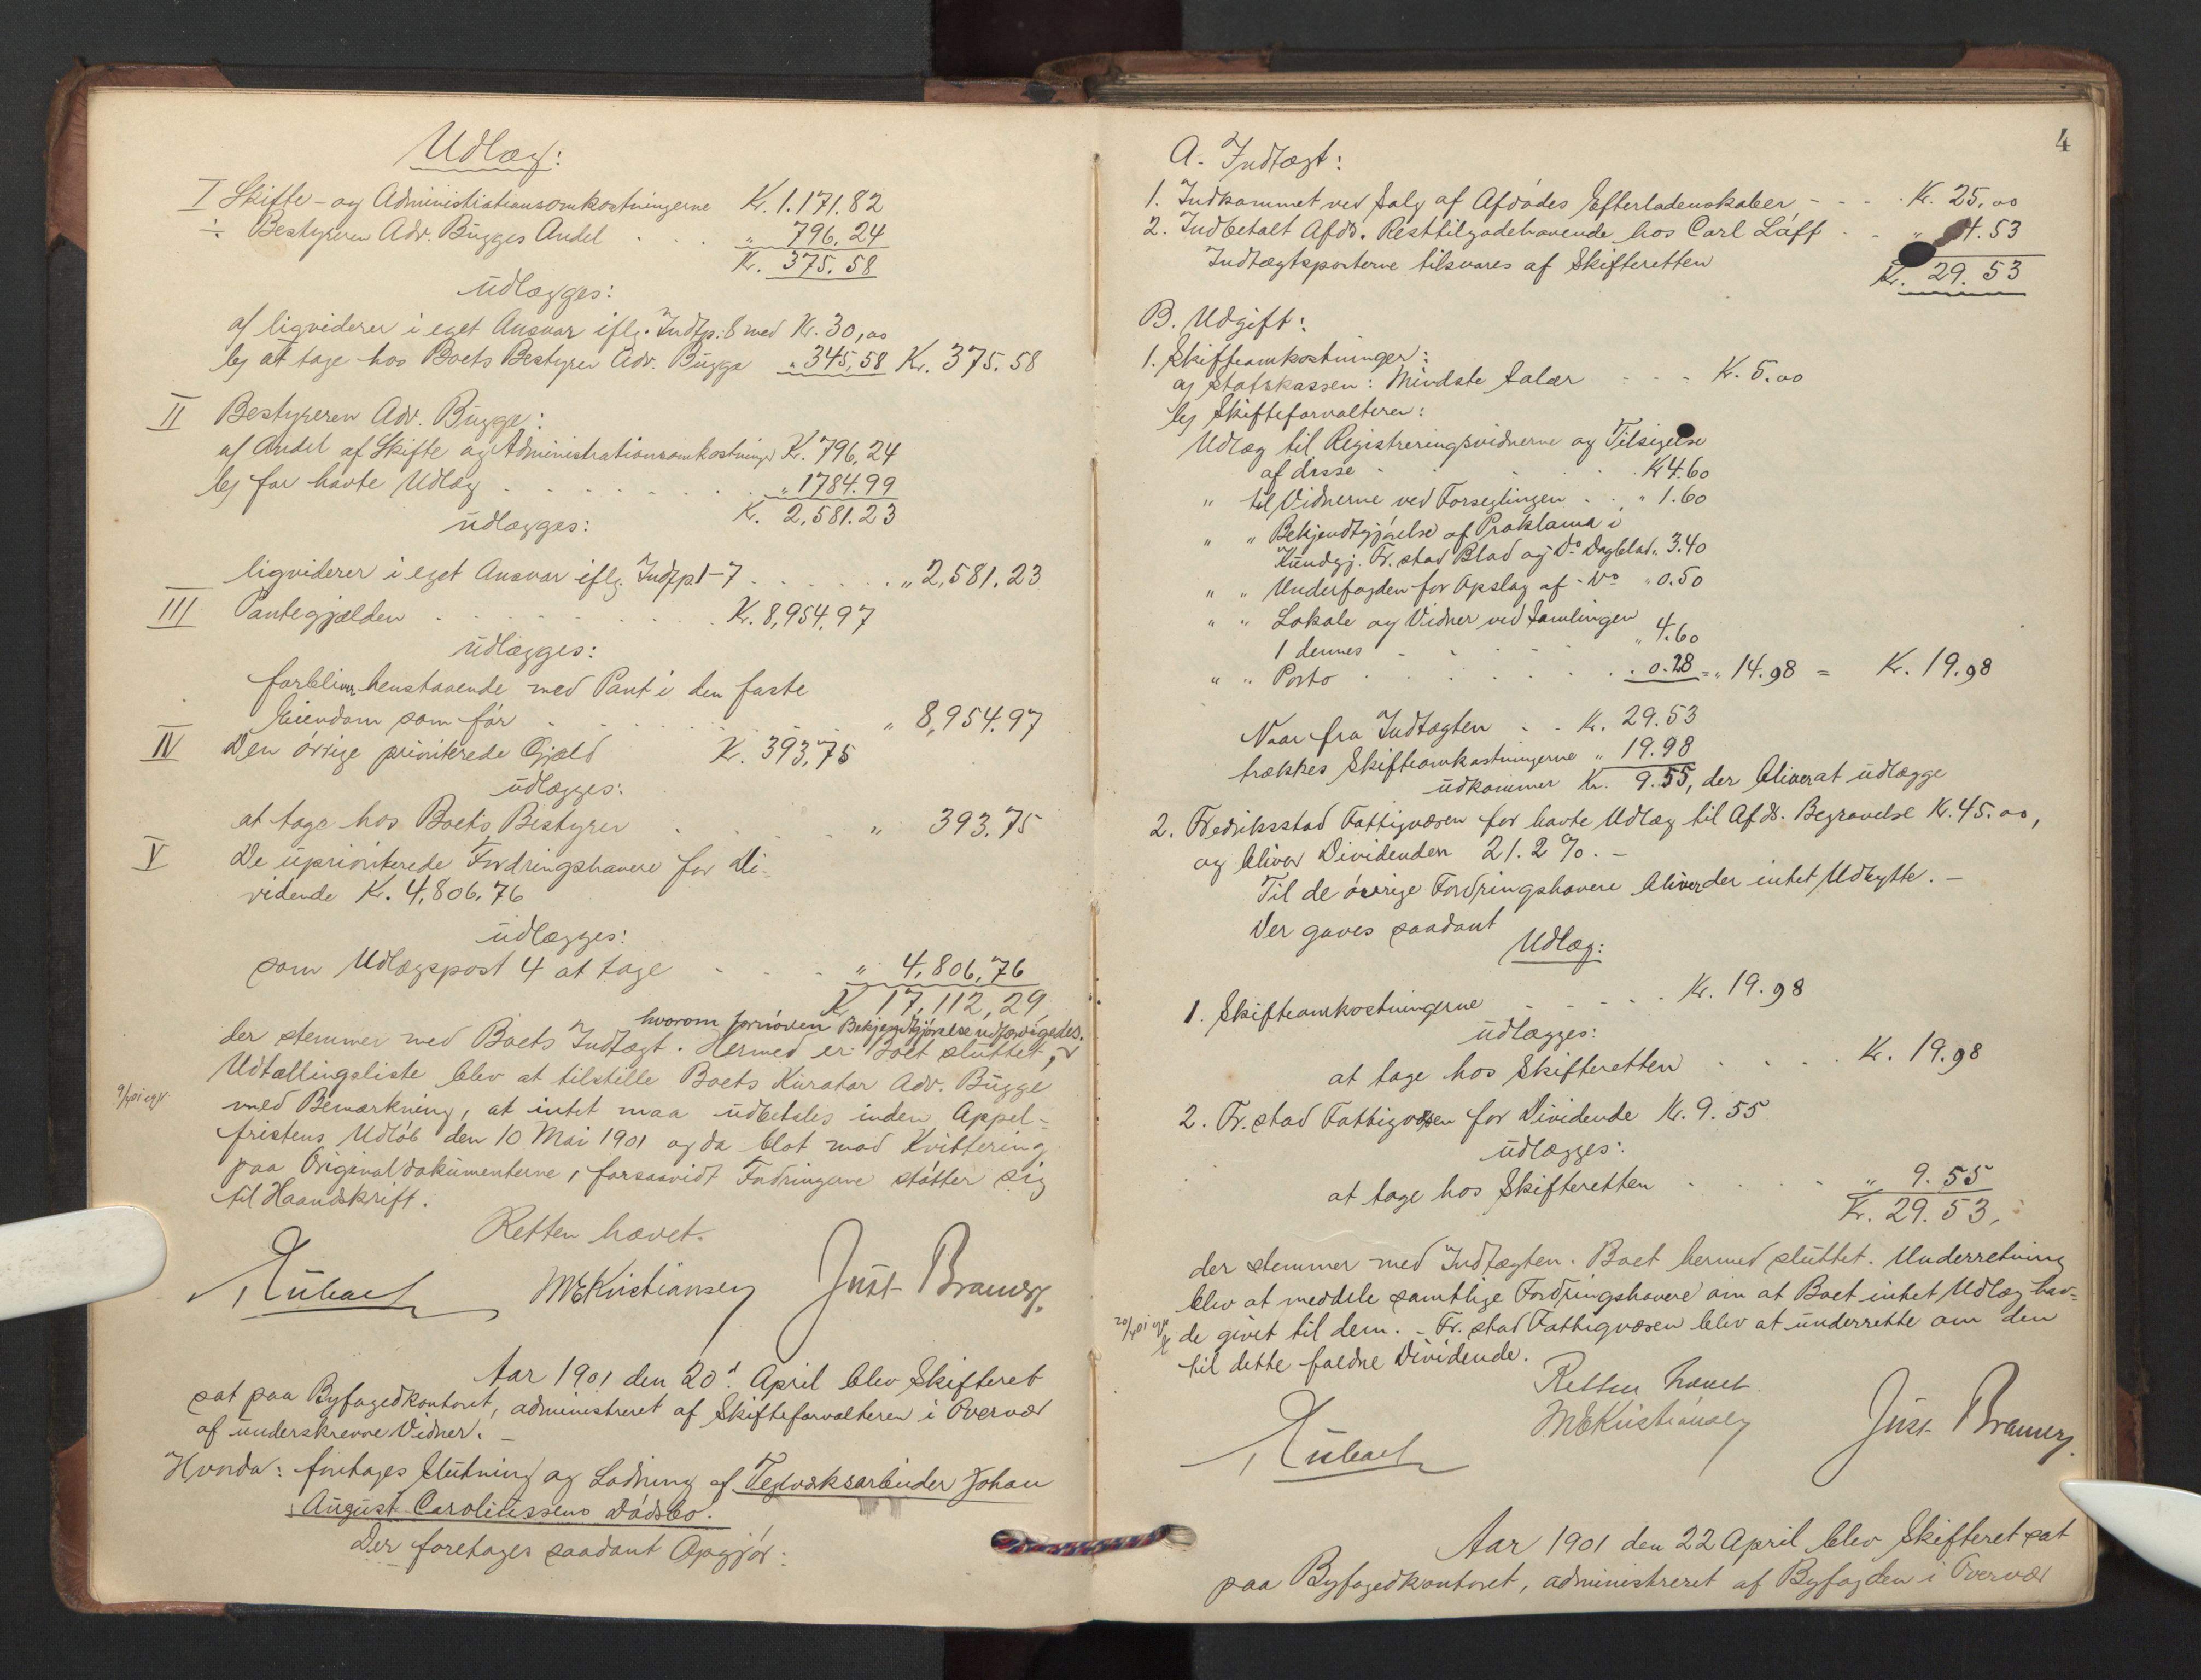 Udlæg:
I Skifte- og Administrationsomkostningerne Kr. 1.171.82
÷ Bestyreren Adv. Bugges Andel . . . " 796.24
Kr. 375.58
udlægges:
a) ligviderer i eget Ansvar iflg. Indtp: 8 med Kr. 30,00
b) at tage hos Boets Bestyrer Adv. Bugge " 345,58 Kr. 375.58
II Bestyreren Adv. Bugge:
a) Andel af Skifte og Administrationsomkostninger Kr. 796,24
b) for havte Udlæg . . . . . . . " 1784.99
Kr. 2,581.23
udlægges:
ligviderer i eget Ansvar iflg. Indtp 1-7 . . . . . . " 2,581.23
III Pantegjælden . . . . . . . Kr. 8,954.97
udlægges:
forbliver henstaaende med Pant i den faste
Eiendom som før . . . . . . " 8,954.97
IV Den øvrige prioriterede Gjæld Kr. 393,75
udlægges:
at tage hos Boets Bestyrer . . . . . " 393.75
V De uprioriterede Fordringshavere for Di-
vidende Kr. 4,806,76
udlægges:
som Udlægspost 4 at tage - - - . " 4,806,76
Kr. 17,112,29,
hvorom fornöden Bekjendtgjörelse udfærdigedes.
der stemmer med Boets Indtægt. Hermed er Boet sluttet,
Udtællingsliste blev at tilstille Boets Kurator Adv. Bugge
9/4 01
med Bemærkning, at intet maa udbetales inden Appel-
fristens Udløb den 10 Mai 1901 og da blot mod Kvittering
paa Originaldokumenterne, forsaavidt Fordringerne støtter sig
til Haandskrift.
Retten hævet.
MEKristiansen Just Bramer
Aar 1901 den 20d April blev Skifteret
sat paa Byfogedkontoret, administreret af Skifteforvalteren i Overvær
af underskrevne Vidner. -
Hvorda: foretages Slutning og Lodning af Teglværksarbeider Johan
August Caroliussens Dødsbo.
Der foretages saadant Opgjør:
4
A. Indtægt:
1. Indkommet ved Salg af Afdødes Efterladenskaber - - - . Kr. 25.00
2. Indbetalt Afds. Resttilgodehavende hos Carl Løff - - " 4.53
Indtægtsposterne tilsvares af Skifteretten Kr. 29.53
B. Udgift:
1. Skifteomkostninger:
a) Statskassen: Mindste Salær - - - Kr. 5.00
b) Skifteforvalteren:
Udlæg til Registreringsvidnerne og Tilsigelse
af disse . . . . Kr 4.60
" til Vidnerne ved Forseglingen . . " 1.60
" " Bekjendtgjørelse af Proklama i
Kundgj. Fr.stad Blad og Do Dagblad " 3.40
" " Underfogden for Opslag af Do " 0.50
" " Lokale og Vidner ved Samlingen
i dennes - - - - " 4.60
" " Porto . . . . . . . 0.28 = " 14.98 = Kr. 19.98
Naar fra Indtægten . . Kr. 29.53
trækkes Skifteomkostningerne " 19.98
udkommer Kr. 9.55, der bliver at udlægge
2. Fredriksstad Fattigvæsen for havte Udlæg til Afds. Begravelse Kr. 45.00,
og bliver Dividenden 21.2 %. -
Til de øvrige Fordringshavere bliver der intet Udbytte. -
Der gaves saadant
Udlæg:
1. Skifteomkostningerne - - - - . Kr. 19.98
udlægges:
at tage hos Skifteretten . . . . Kr. 19.98
2. Fr.stad Fattigvæsen for Dividende Kr. 9.55
udlægges:
at tage hos Skifteretten . . . . " 9.55
Kr. 29.53,
der stemmer med Indtægten. Boet hermed sluttet. Underretning
blev at meddele samtlige Fordringshavere om at Boet intet Udlæg hav-
20/4 01
de givet til dem. - Fr.stad Fattigvæsen blev at underrette om den
til dette faldne Dividende.
Retten hævet.
MEKristiansen Just Bramer
Aar 1901 den 22 April blev Skifteret sat
paa Byfogedkontoret, administreret af Byfogden i Overvær